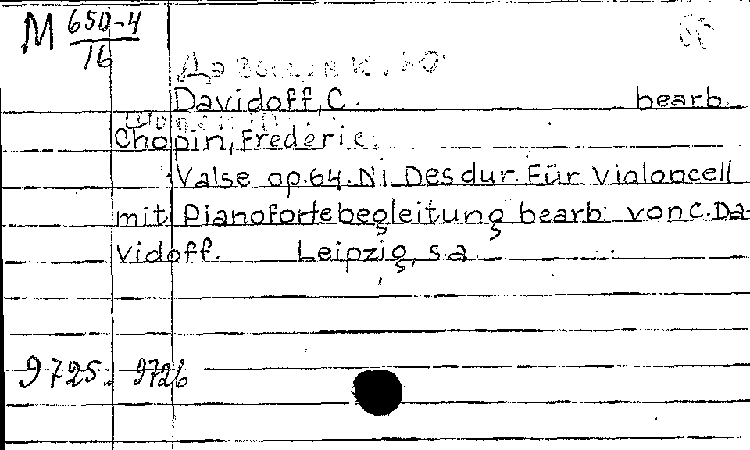 M 650-4
16
Davidoff, C. bearb.
Chopin, Frédéric.
Valse op. 64. N1 Des dur. Für Violoncell
mit Pianofortebegleitung bearb. von C. Da-
vidoff. Leipzig, s. a.
9725. 9726